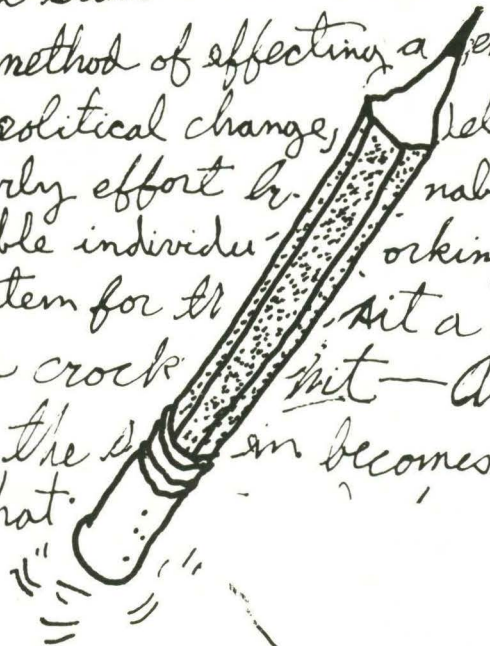 method of effecting a
political change,
rly effort by
ble individu orkin
tem for th sit a
crock
the in becomes
hat